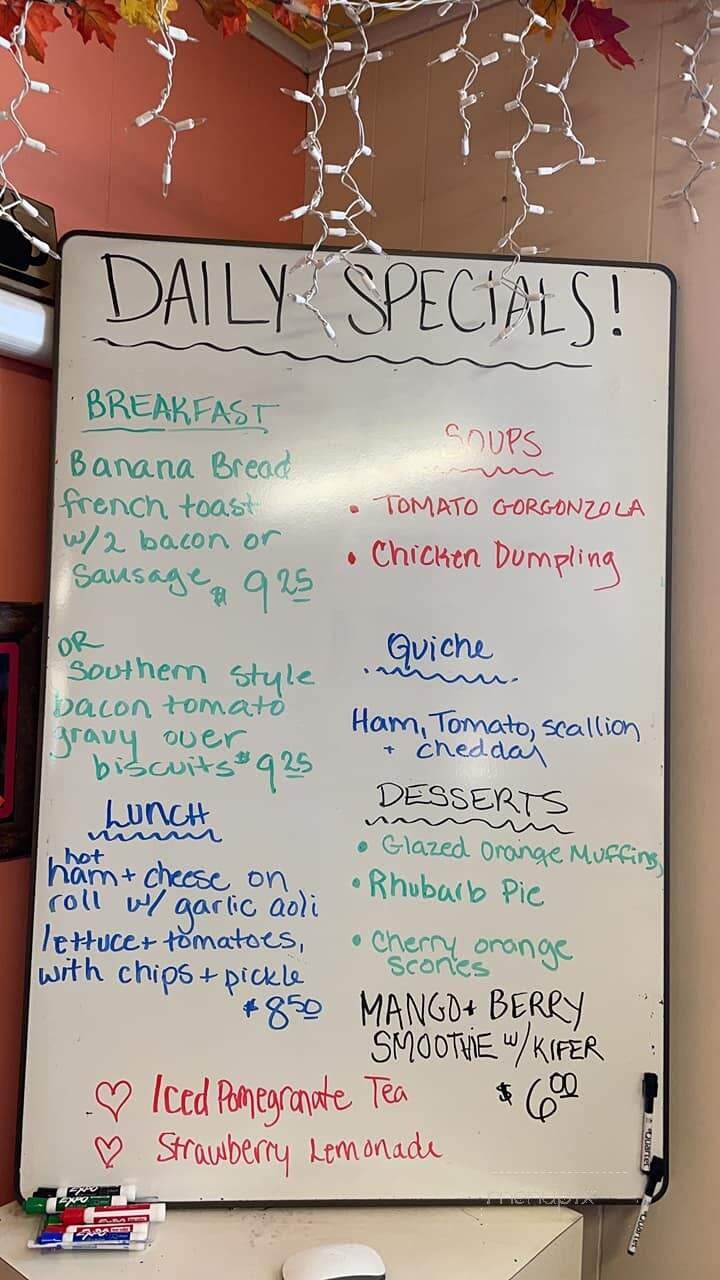 DAILY SPECIALS!
BREAKFAST
Banana Bread
french toast
w/2 bacon or
Sausage $9 25
OR
Southern style
bacon tomato
gravy over
biscuits $9 25
LUNCH
hot
ham + cheese on
roll w/ garlic aoli
lettuce + tomatoes,
with chips + pickle
$8 50
SOUPS
• TOMATO GORGONZOLA
• Chicken Dumpling
Quiche
Ham, Tomato, scallion
+ cheddar
DESSERTS
• Glazed Orange Muffins
• Rhubarb Pie
• Cherry orange
scones
MANGO + BERRY
SMOOTHIE w/ KIFER
$6 00
♡ Iced Pomegranate Tea
♡ Strawberry Lemonade
expo
expo
expo
Quartet
Quartet
menupix